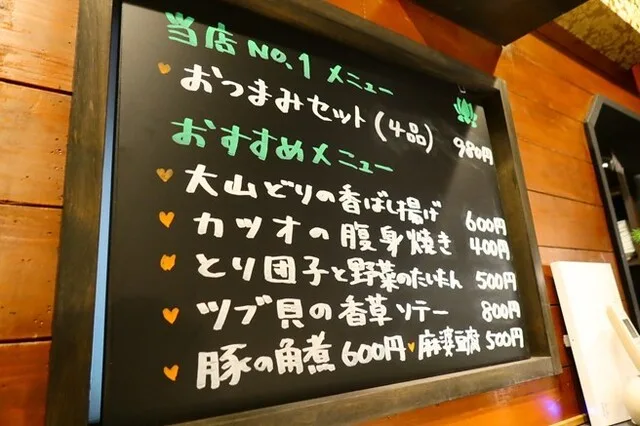 当店No.1 メニュー
♥ おつまみセット(4品) 980円
おすすめメニュー
♥ 大山どりの香ばし揚げ 600円
♥ カツオの腹身焼き 400円
♥ とり団子と野菜のたいたん 500円
♥ ツブ貝の香草ソテー 800円
♥ 豚の角煮 600円 ♥ 麻婆豆腐 500円